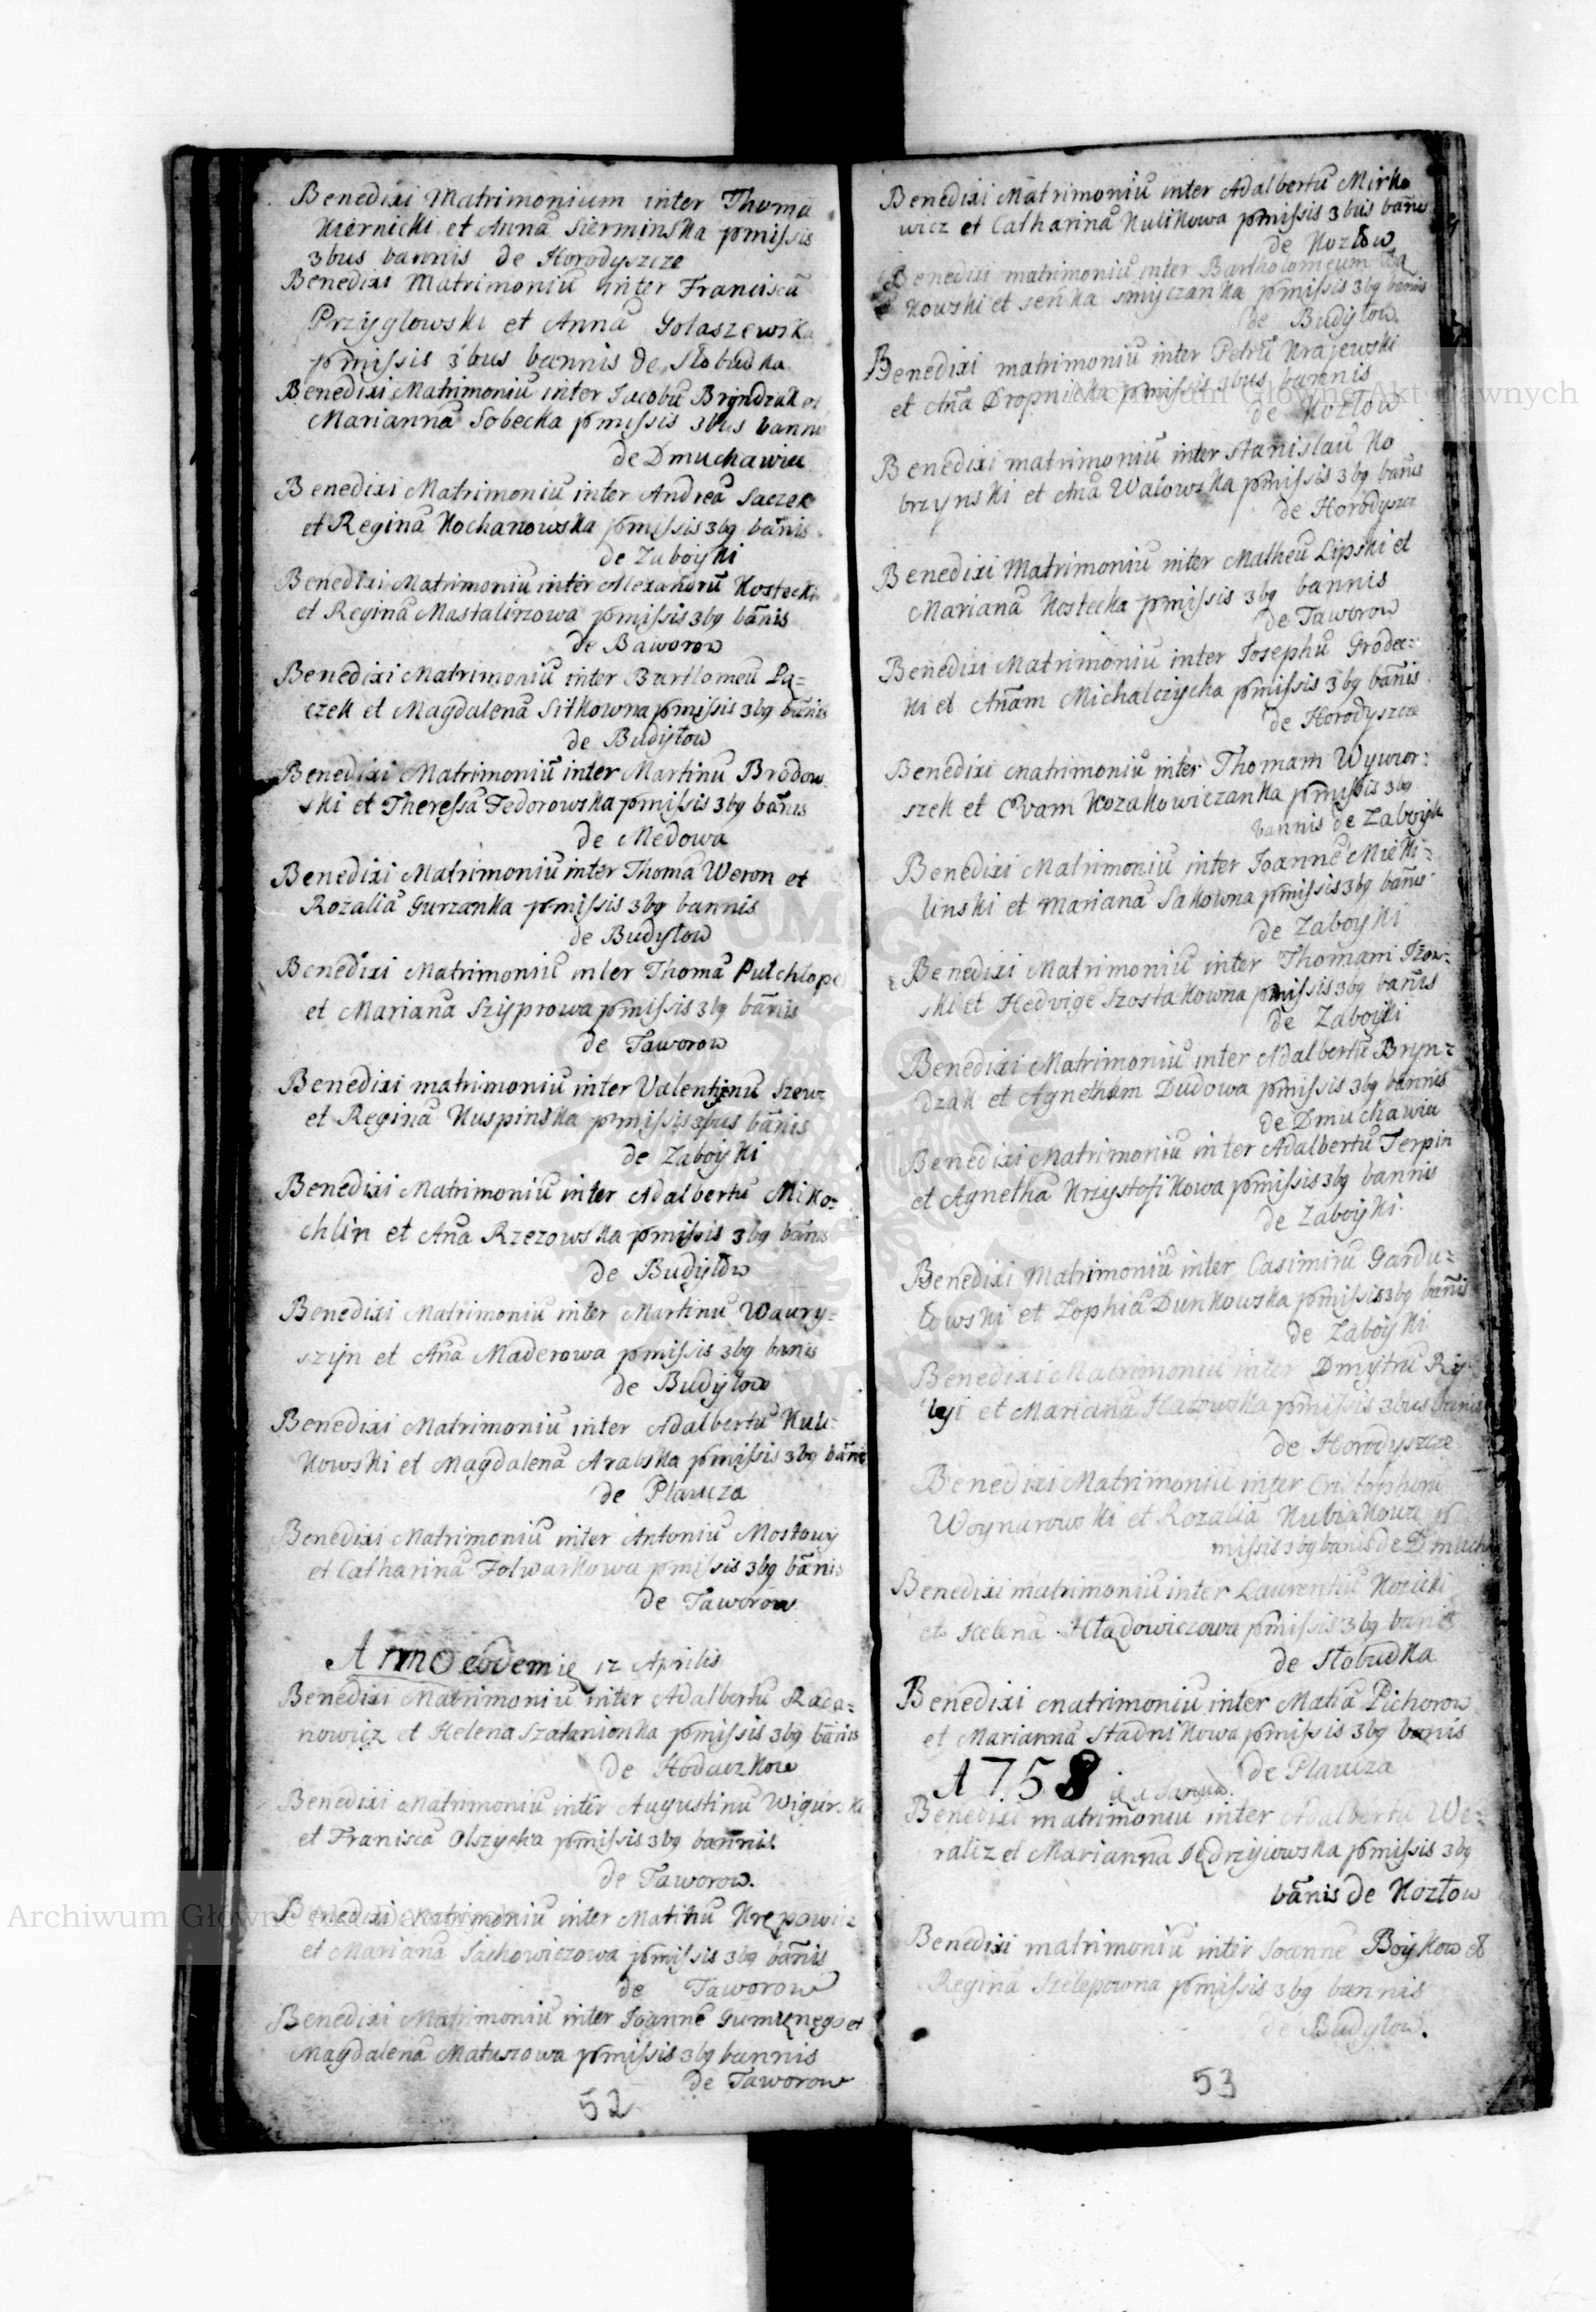 Benedixi Matrimonium inter Thomã
Kiernicki et Annã Sierminska pmissis
3bus bannis de Horodyszcze
Benedixi Matrimoniũ inter Franciscũ
Przyglowski et Annã Golaszewska
pmissis 3bus bannis de Slobudka
Benedixi Matrimoniũ inter Iacobũ Bryndzak et
Mariannã Sobecka pmissis 3bus bannis
de Dmuchawiec
Benedixi Matrimoniũ inter Andreã Saczek
et Reginã Kochanowska pmissis 3bq bãnis
de Zaboyki
Benedixi Matrimoniũ inter Alexandrũ Kostecki
et Reginã Mastalirzowa pmissis 3bq bãnis
de Baworow
Benedixi Matrimoniũ inter Bartlomeũ Lą=
czek et Magdalenã Sitkowna pmissis 3bq bãnis
de Budyłow
Benedixi Matrimoniũ inter Martinũ Brodow
ski et Theressã Fedorowska pmissis 3bq bãnis
de Medowa
Benedixi Matrimoniũ inter Thomã Weron et
Rozaliã Gurzanka pmissis 3bq bannis
de Budyłow
Benedixi Matrimoniũ inter Thomã Pulchlope
et Marianã Szyprowa pmissis 3bq bãnis
de Taworow
Benedixi matrimoniũ inter Valentinũ Szewc
et Reginã Kuspinska pmissis 3bus bãnis
de Zaboyki
Benedixi Matrimoniũ inter Adalbertũ Miko=
chlin et Anã Rzezowska pmissis 3bq bãnis
de Budyłow
Benedixi Matrimoniũ inter Martinũ Wawry=
szyn et Anã Maderowa pmissis 3bq banis
de Budyłow
Benedixi Matrimoniũ inter Adalbertũ Kuli=
kowski et Magdalenã Arabska pmissis 3bq bãnis
de Plaucza
Benedixi Matrimoniũ inter Antoniũ Mostowy
et Catharinã Folwarkowa pmissis 3bq bãnis
de Taworow
Anno eodem 12 Aprilis
Benedixi Matrimoniũ inter Adalbertũ Rada=
nowicz et Helena Szatanionka pmissis 3bq bãnis
de Hodaczkow
Benedixi Matrimoniũ inter Augustinũ Wigurski
et Franiscã Olszycka pmissis 3bq bannis
de Taworow.
Benedixi Matrimoniũ inter Mathiũ Krępowicz
et Marianã Sackowiczowa pmissis 3bq bãnis
de Taworow
Benedixi Matrimoniũ inter Joannẽ Gumięnego et
Magdalenã Matuszowa pmissis 3bq bannis
de Taworow
52
Benedixi Matrimoniũ inter Adalbertũ Mirko
wicz et Catharinã Kulikowa pmissis 3bus bãnis
de Kozłow
Benedixi matrimoniũ inter Bartholomeum Ba
kowski et senka smyczanka pmissis 3bq bãnis
de Budyłow.
Benedixi matrimoniũ inter Petrũ Krajewski
et Anã Dropnicka pmissis 3bus bannis
de Kozlow
Benedixi matrimoniũ inter stanislaũ Ko
brzynski et Anã Walowska pmissis 3bq bãnis
de Horodyszcz
Benedixi Matrimoniũ inter Matheũ Lipski et
Marianã Kostecka pmissis 3bq bannis
de Taworow
Benedixi Matrimoniũ inter Iosephũ Grodec=
ki et Anãm Michalczycka pmissis 3bq bãnis
de Horodyszcze
Benedixi matrimoniũ inter Thomam Wywior=
szek et Evam Kozakowiczanka pmissis 3bq
bannis de Zaboyki
Benedixi Matrimoniũ inter Joannẽ Mieki=
linski et Marianã Sakowna pmissis 3bq bãnis
de Zaboyki
Benedixi Matrimoniũ inter Thomam Iżow=
ski et Hedvigẽ Szostakowna pmissis 3bq bãnis
de Zaboyki
Benedixi Matrimoniũ inter Adalbertũ Bryn=
dzak et Agnetham Dudowa pmissis 3bq bannis
de Dmuchawiec
Benedixi Matrimoniũ inter Adalbertũ Terpin
et Agnethã Krzystofikowa pmissis 3bq bannis
de Zaboyki.
Benedixi Matrimoniũ inter Casimirũ Gardu=
łowski et Zophiã Dunkowska pmissis 3bq bãnis
de Zaboyki
Benedixi Matrimoniũ inter Dmytrũ
et Marianã pmissis 3bus banis
de Horodyszcze
Benedixi Matrimoniũ inter Cristophorũ
Woynarowski et Rozaliã Kubiakowa p
missis 3bq banis de Dmuch
Benedixi matrimoniũ inter Laurentiũ Kozicki
et Helenã Hładowiczowa pmissis 3bq banis
de Słobudka
Benedixi matrimoniũ inter Matiã Pichorow
et Mariannã Stadnikowa pmissis 3bq banis
de Plaucza
A 1758
Benedixi matrimoniũ inter Adalbertũ We=
ralicz et Mariannã Jędrzyiowska pmissis 3bq
bãnis de Kozłow
Benedixi matrimoniũ inter Joannẽ Boykow et
Reginã Szelepowna pmissis 3bq bannis
de Budyłow.
53
Archiwum Główne Akt Dawnych
Archiwum Główne Akt Dawnych